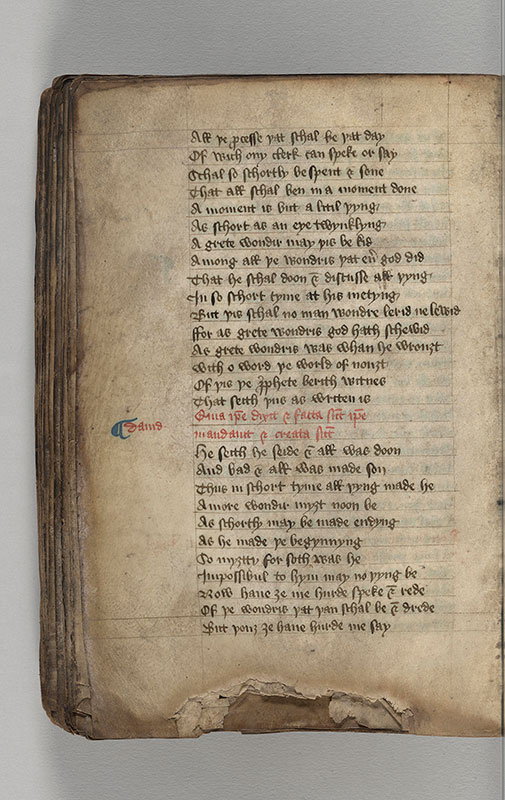 All þe processe þat schal be þat day
Of wich ony clerk can speke or say
Schal so schortly be spent & sone
That all schal ben in a moment done
A moment is but a litil þyng
As schort as an eye twynklyng
A grete wondir may þis be kid
Among all þe wondris þat eu̅ god did
That he schal doon & discusse all þyng
In so schort tyme at his metyng
But þis schal no man wondre lerid ne lewid
ffor as grete wondris god hath schewid
As grete wondris was whan he wrouȝt
with o word þe world of nouȝt
Of þis þe p̃phete berith witnes
That seith þus as written is
Quia ip̅e dixit & facta su̅t ip̅e
mandauit & creata su̅t
Dauid
He seith he seide & all was doon
And bad & all was made son
Thus in schort tyme all þyng made he
A more wondir myȝt noon be
As schortly may be made endyng
As he made þe begynnyng
So myȝtty for soth was he
Impossibul to hym may no þyng be
Now haue ȝe me hurde speke & rede
Of þe wondris þat þan schal be & drede
But þouȝ ȝe haue hurde me say